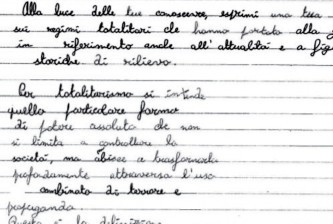 Alla luce delle tue conoscenze, esprimi una tesi
sui regimi totalitari che hanno portato alla
in riferimento anche all'attualità e a
storiche di rilievo.
Per totalitarismo si intende
quella particolare forma
di potere assoluto che non
si limita a controllare la
società, ma abisce a trasformarla
profondamente attraverso l'uso
combinato di terrore e
propaganda
Questa è la definizione